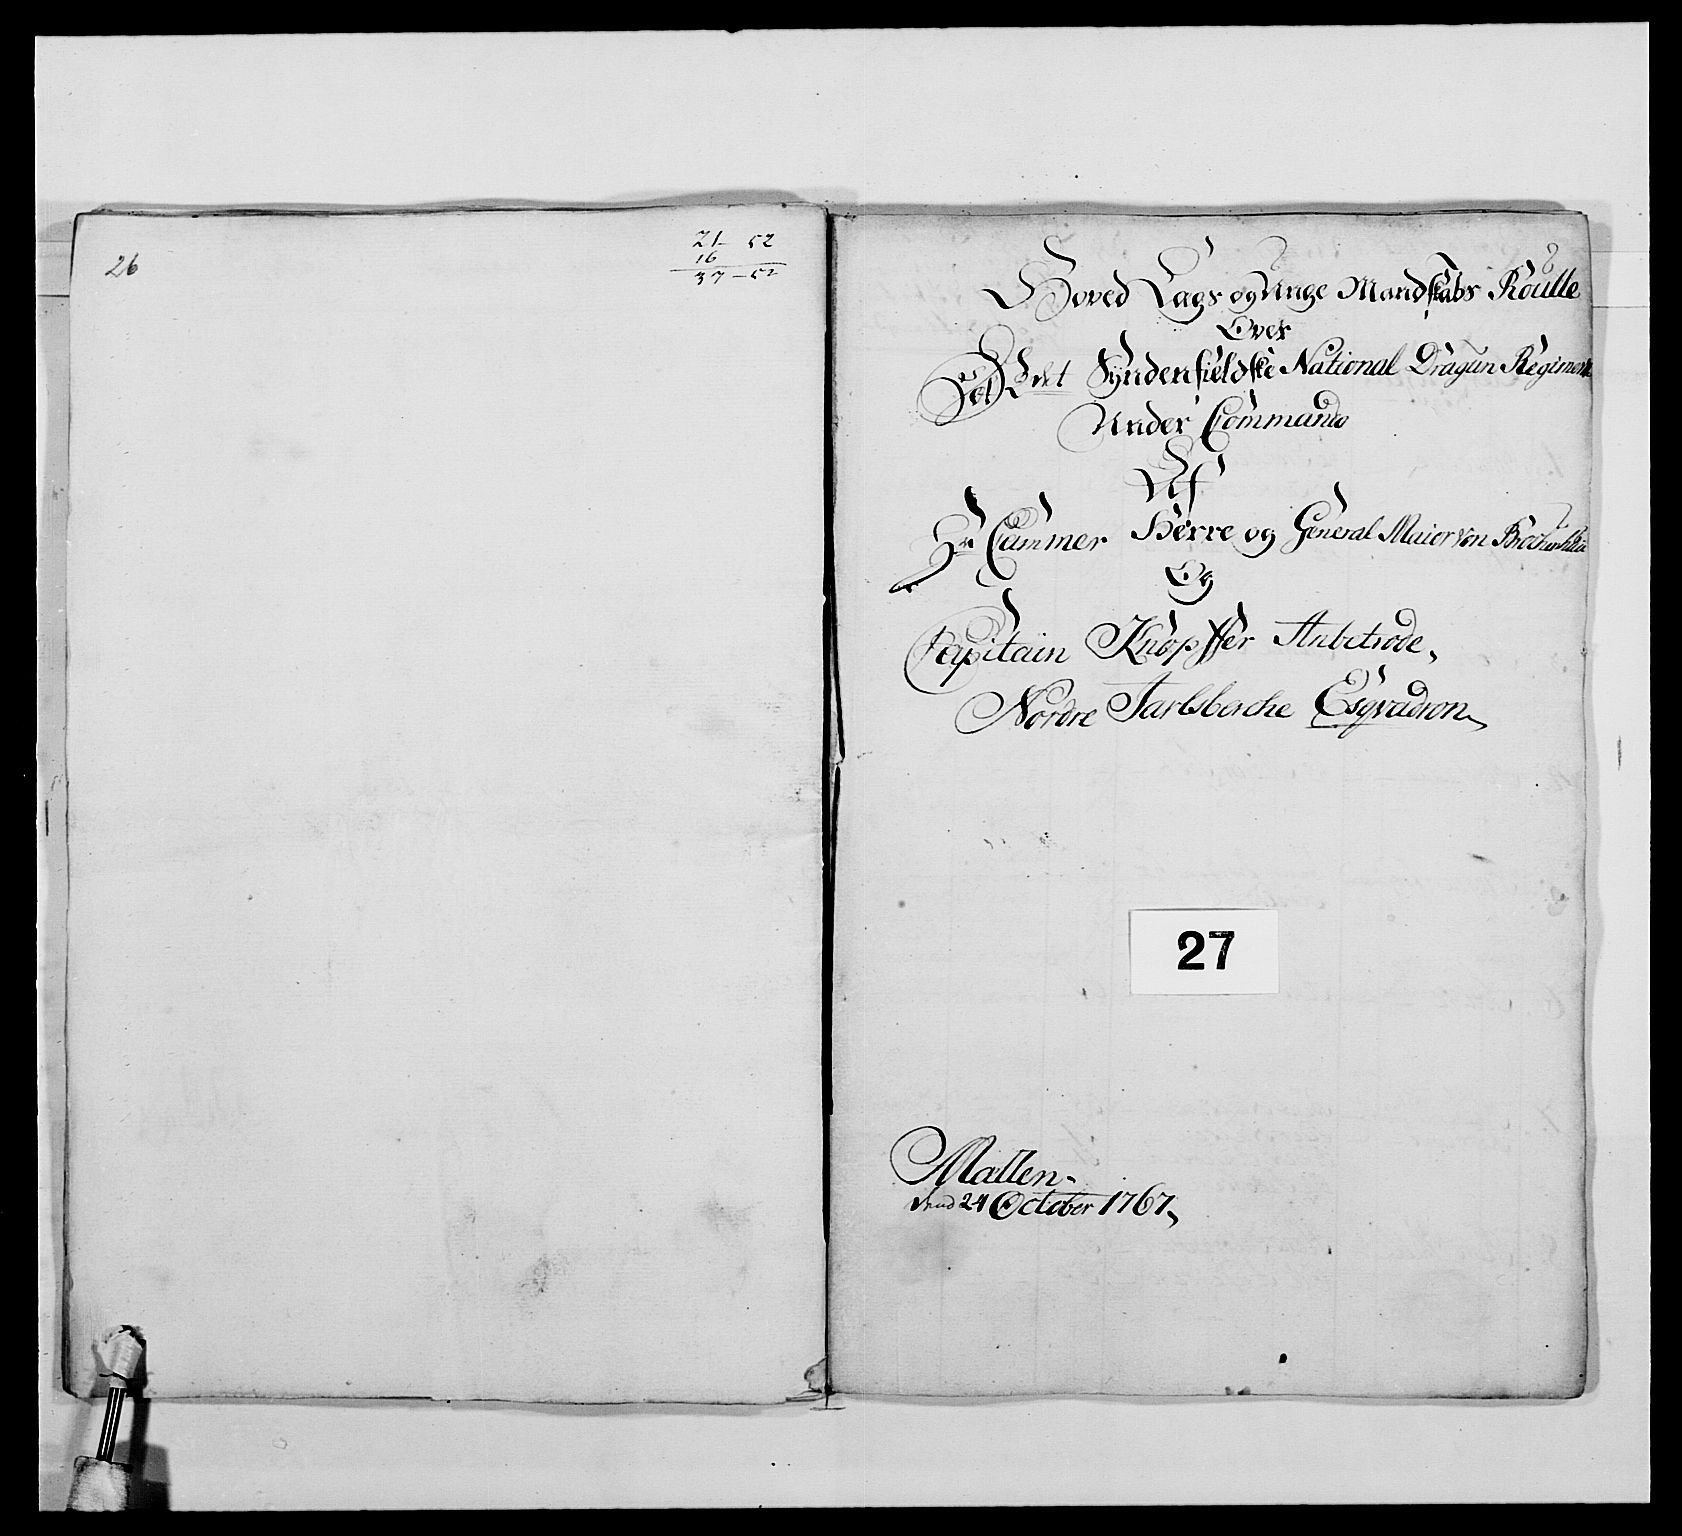 26
21 - 52
16
37 - 52
Hoved Lags og Unge Mandskabs Roulle
Over
Det det Syndenfieldske National Dragun Regiment
Under Commando
Af
Hr Cammer Herre og General Maior von
Og
Capitain Knopffer Anbetrode,
Nordre Jarlsberche Esqvadron,
27
Mallen.
dend 24 October 1767,